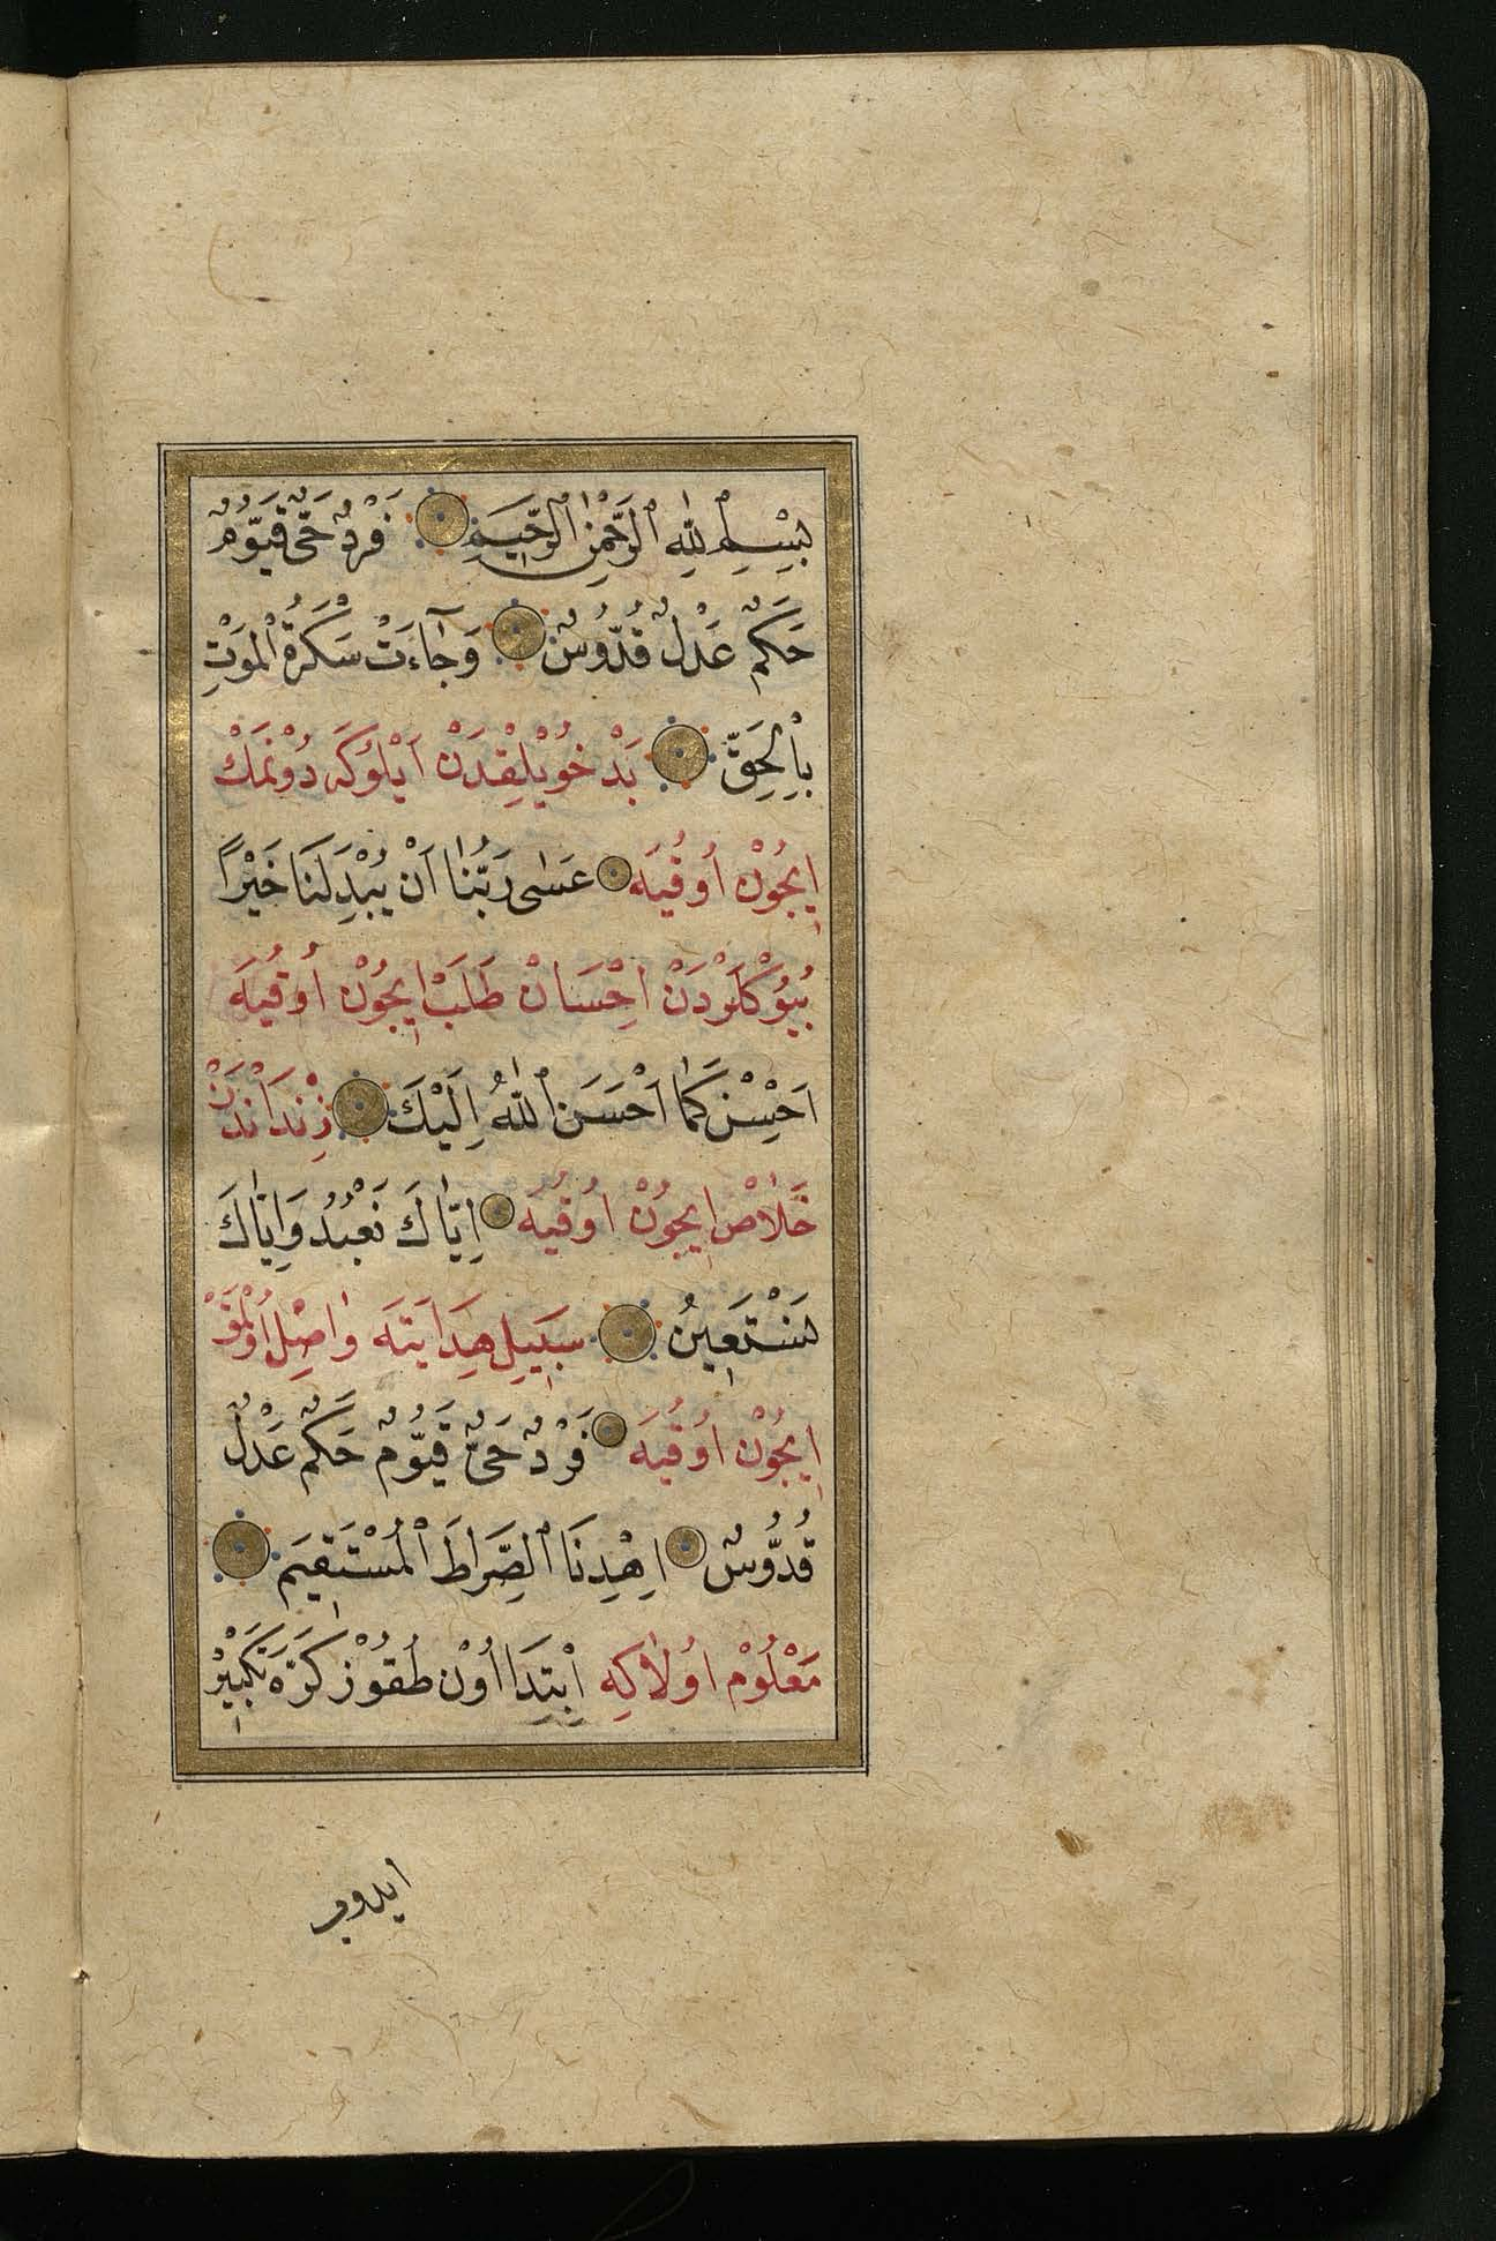 بِسْمِ اللّٰهِ الرَّحْمٰنِ الرَّحِيمِ فَرْدٌ حَىٌّ قَيُّومٌ
حَكَمٌ عَدْلٌ قُدُّوسٌ وَجَاءَتْ سَكْرَةُ الْمَوْتِ
بِالْحَقِّ بَدْ خُويْلِقْدَنْ اَيْلُوكَه دُونْمَكْ
اِيجُونْ اُوقُيَه عَسٰى رَبُّنَا اَنْ يُبْدِلَنَا خَيْرًا
بُيُوكْلَرْدَنْ اِحْسَانْ طَلَبْ اِيجُونْ اُوقُيَه
اَحْسِنْ كَمَا اَحْسَنَ اللّٰهُ اِلَيْكَ زِنْدَانْدَنْ
خَلَاصْ اِيجُونْ اُوقُيَه اِيَّاكَ نَعْبُدُ وَاِيَّاكَ
نَسْتَعِينُ سَبِيلِ هِدَايَتَه وَاصِلْ اُولْمَقْ
اِيجُونْ اُوقُيَه فَرْدٌ حَىٌّ قَيُّومٌ حَكَمٌ عَدْلٌ
قُدُّوسٌ اِهْدِنَا الصِّرَاطَ الْمُسْتَقِيمَ
مَعْلُومْ اُولَا كِه اِبْتِدَا اُونْ طُقُوزْ كَرَّه تَكْبِيرْ
ايدوب